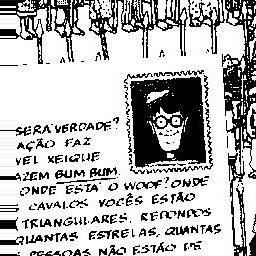 SERÁ VERDADE?
AÇÃO FAZ
VEL XEIQUE
AZEM BUM BUM.
ONDE ESTÁ O WOOF? ONDE
CAVALOS VOCÊS ESTÃO
TRIANGULARES, REDONDOS
QUANTAS ESTRELAS, QUANTAS
PESSOAS NÃO ESTÃO DE